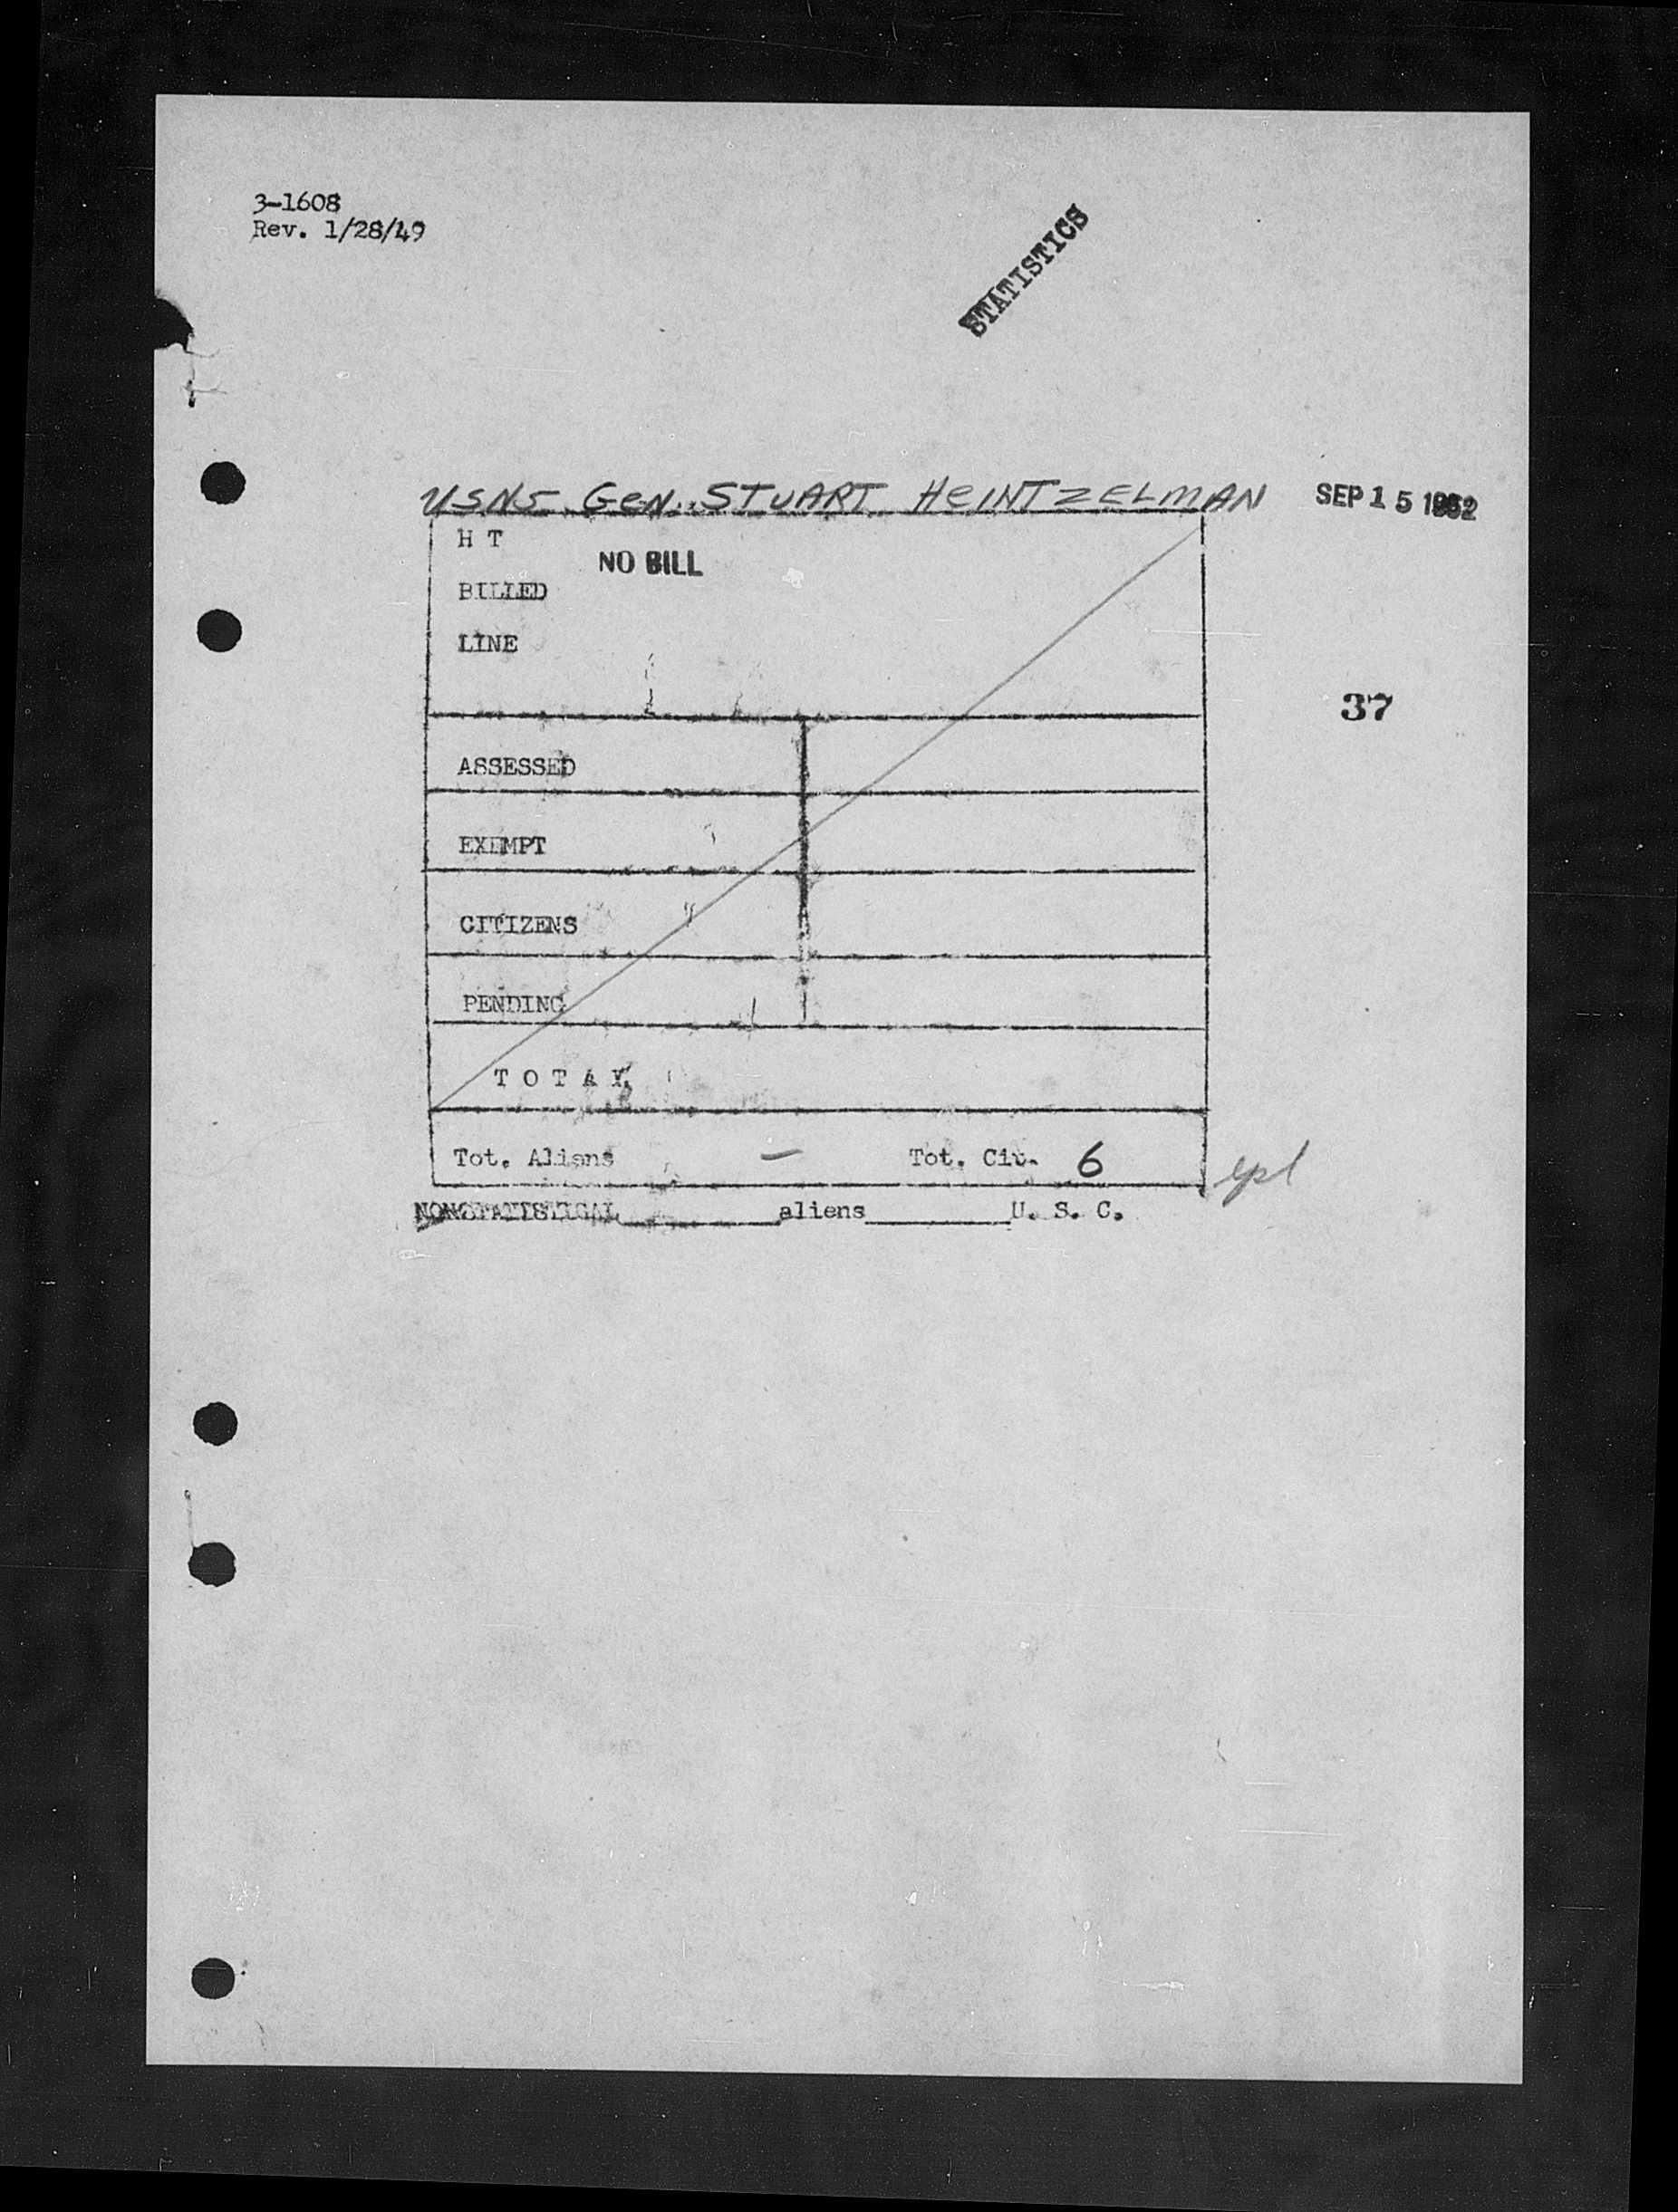 3-1608
Rev. 1/28/49
STATISTICS
USNS GeN. STUART HeINTZELMAN SEP 15 1952
H T
NO BILL
BILLED
LINE
37
ASSESSED
EXEMPT
CITIZENS
PENDING
T O T A L
Tot. Aliens — Tot. Cit. 6
NONSTATISTICAL____aliens____U. S. C.